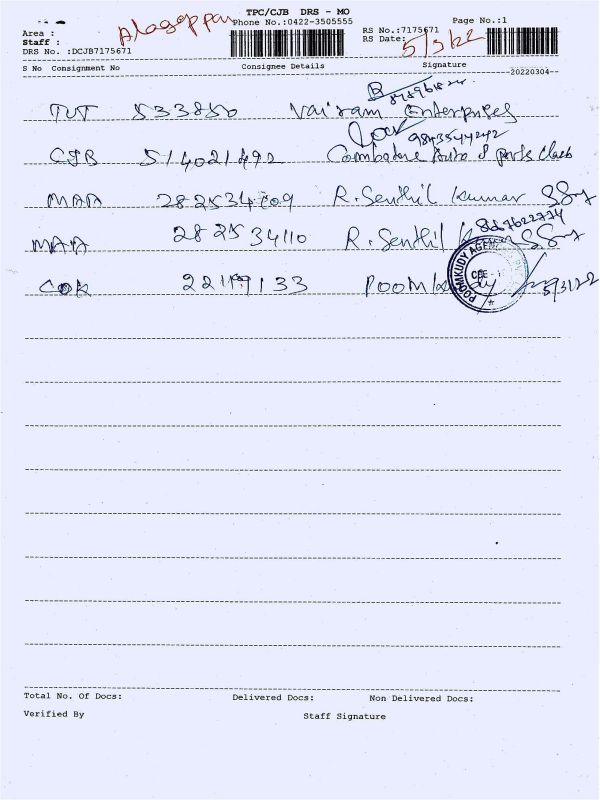 TPC/CJB DRS - MO
Alagappan
Phone No.:0422-3505555
Page No.:1
Area :
Staff :
DRS No. :DCJB7175671
RS No.:7175671
RS Date:
5/3/22
S No Consignment No
Consignee Details
Signature
20220304
TUT 533850 Vairam Enterprises
9843544242
CJB 514021492 Coimbatore Auto
MAA 282534709 R. Senthil Kumar
8667622774
MAA 282534110 R. Senthil
COK 22199133
POOMKUDY AGEN
CBE - 1
5/3/22
Total No. Of Docs:
Delivered Docs:
Non Delivered Docs:
Verified By
Staff Signature